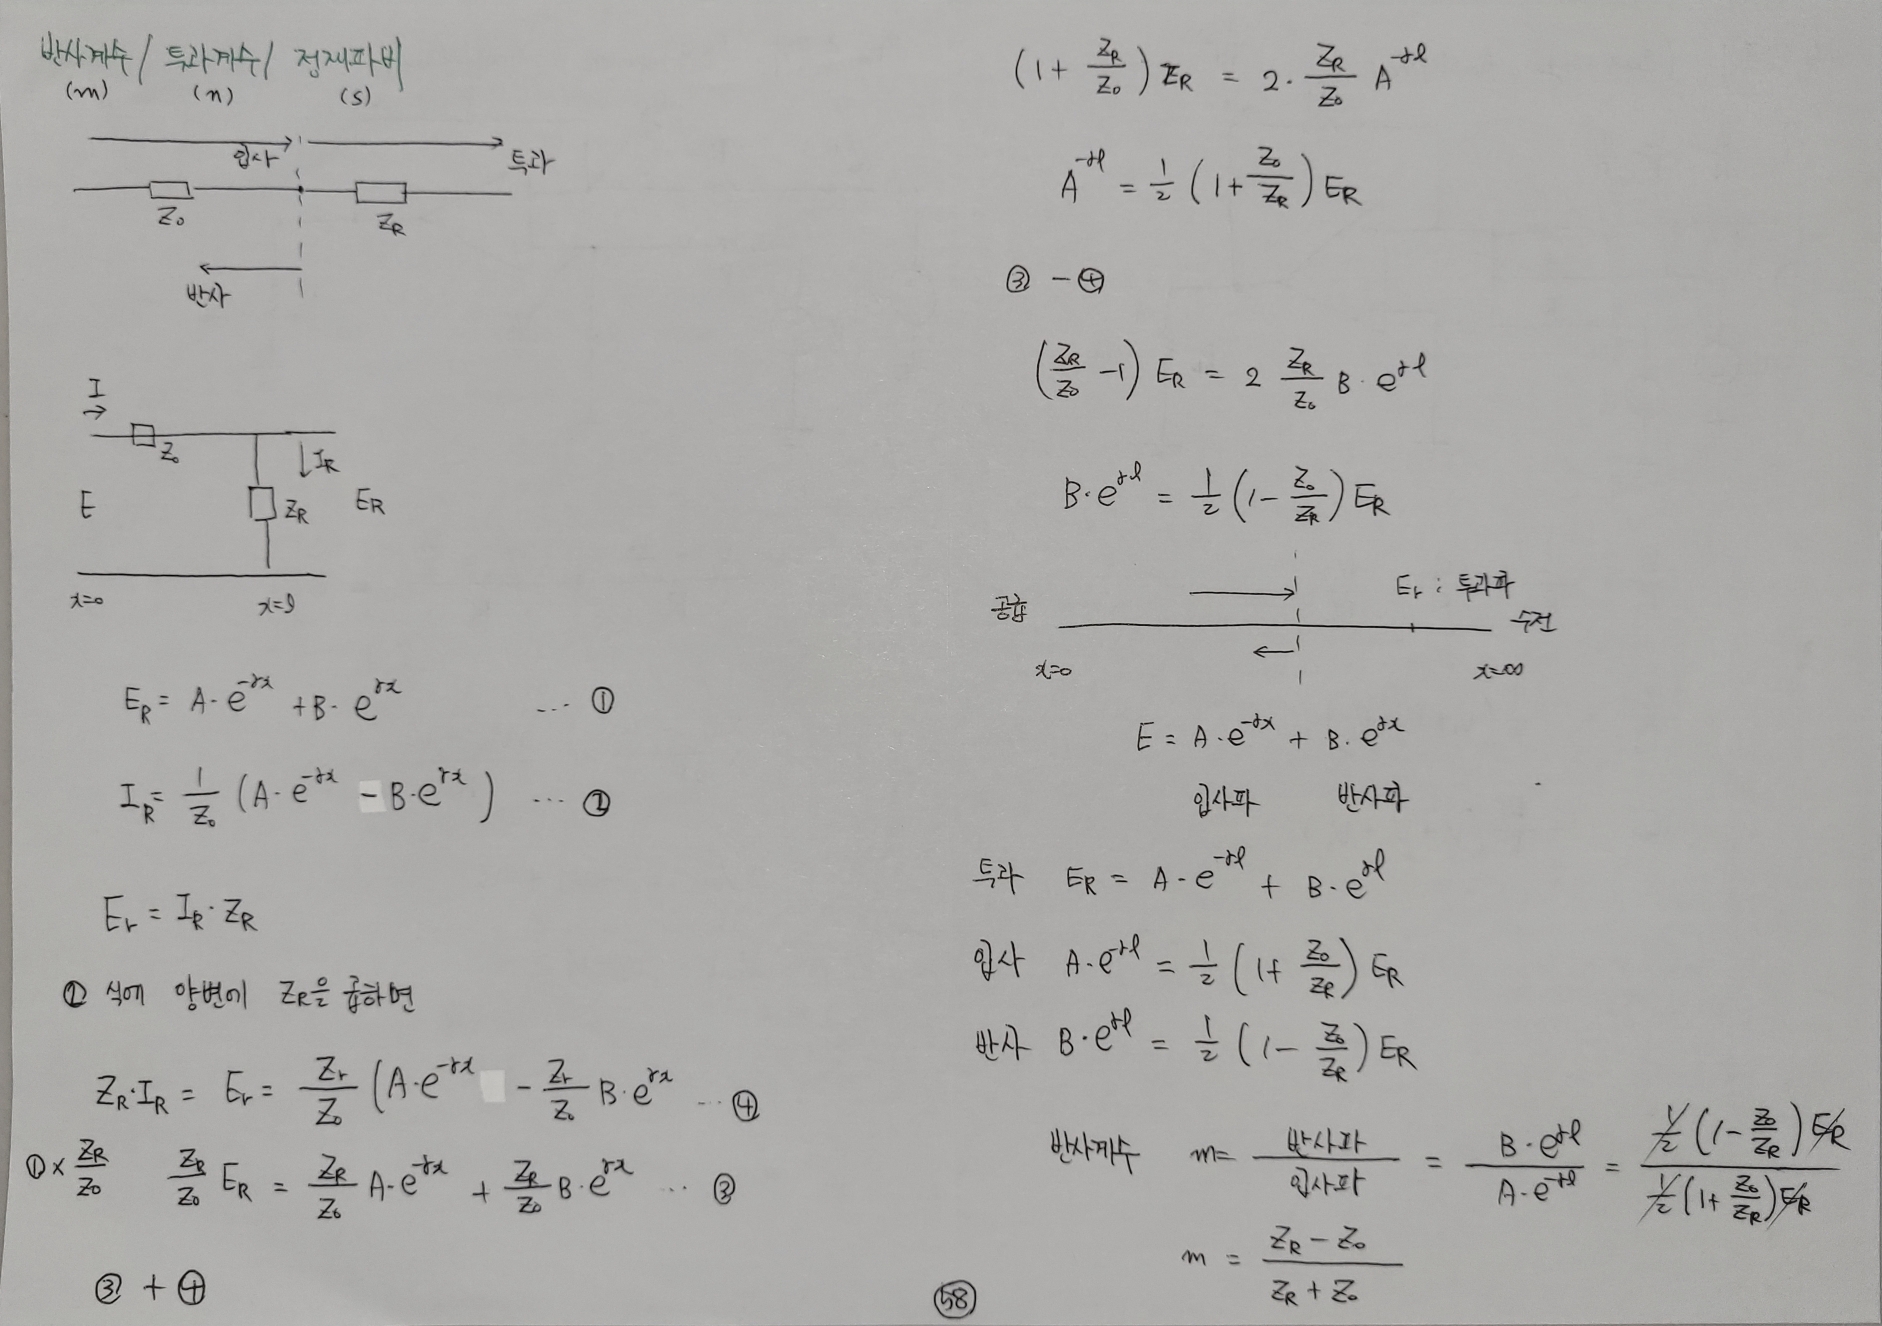 반사계수/ 투과계수/ 정재파비
(m) (n) (s)
입사
투과
Z₀
Z_R
반사
I
Z₀
I_R
E
Z_R
E_R
x=0
x=l
E_R = A·e^{-γx} + B·e^{γx} ... ①
I_R = 1/Z₀ (A·e^{-γx} - B·e^{γx}) ... ②
E_r = I_R·Z_R
② 식에 양변에 Z_R을 곱하면
Z_R·I_R = E_r = Z_r/Z₀ (A·e^{-γx} - Z_r/Z₀ B·e^{γx} ... ④
①× Z_R/Z₀ Z_R/Z₀ E_R = Z_R/Z₀ A·e^{-γx} + Z_R/Z₀ B·e^{γx} ... ③
③ + ④
(1 + Z_R/Z₀) E_R = 2· Z_R/Z₀ A^{-γl}
A^{-γl} = 1/2 (1 + Z₀/Z_R) E_R
③ - ④
(Z_R/Z₀ - 1) E_R = 2 Z_R/Z₀ B·e^{γl}
B·e^{γl} = 1/2 (1 - Z₀/Z_R) E_R
E_r : 투과파
공급
수전
x=0
x=∞
E = A·e^{-γx} + B·e^{γx}
입사파 반사파
투과 E_R = A·e^{-γl} + B·e^{γl}
입사 A·e^{-γl} = 1/2 (1 + Z₀/Z_R) E_R
반사 B·e^{γl} = 1/2 (1 - Z₀/Z_R) E_R
반사계수 m = 반사파/입사파 = B·e^{γl}/A·e^{-γl} = 1/2 (1 - Z₀/Z_R) E_R / 1/2 (1 + Z₀/Z_R) E_R
m = Z_R - Z₀ / Z_R + Z₀
58